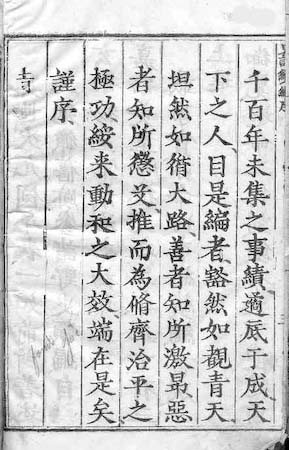 千百年未集之事績遹底于成天
下之人目是編者豁然如覩青天
坦然如循大路善者知所激昂惡
者知所懲艾推而為脩齊治平之
極功綏来動和之大效端在是矣
謹序